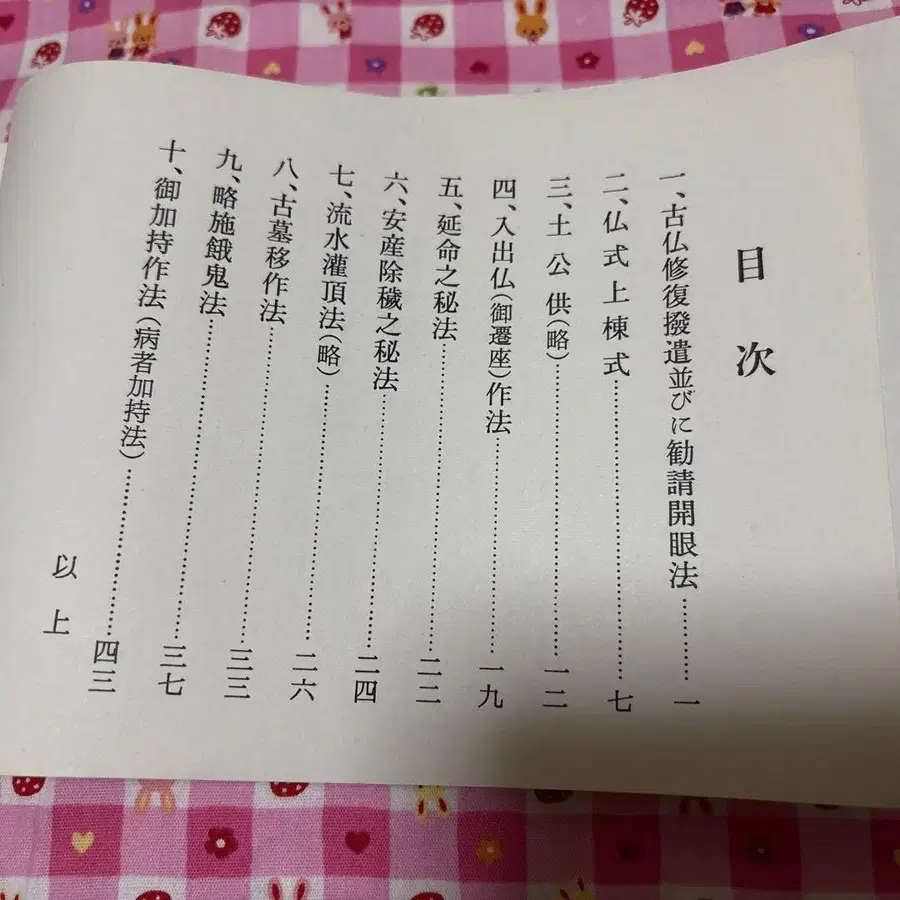 目次
一、古仏修復撥遣並びに勧請開眼法…………一
二、仏式上棟式…………七
三、土公供(略)…………一二
四、入出仏(御遷座)作法…………一九
五、延命之秘法…………二二
六、安産除穢之秘法…………二四
七、流水灌頂法(略)…………二六
八、古墓移作法…………三三
九、略施餓鬼法…………三七
十、御加持作法(病者加持法)…………四三
以上